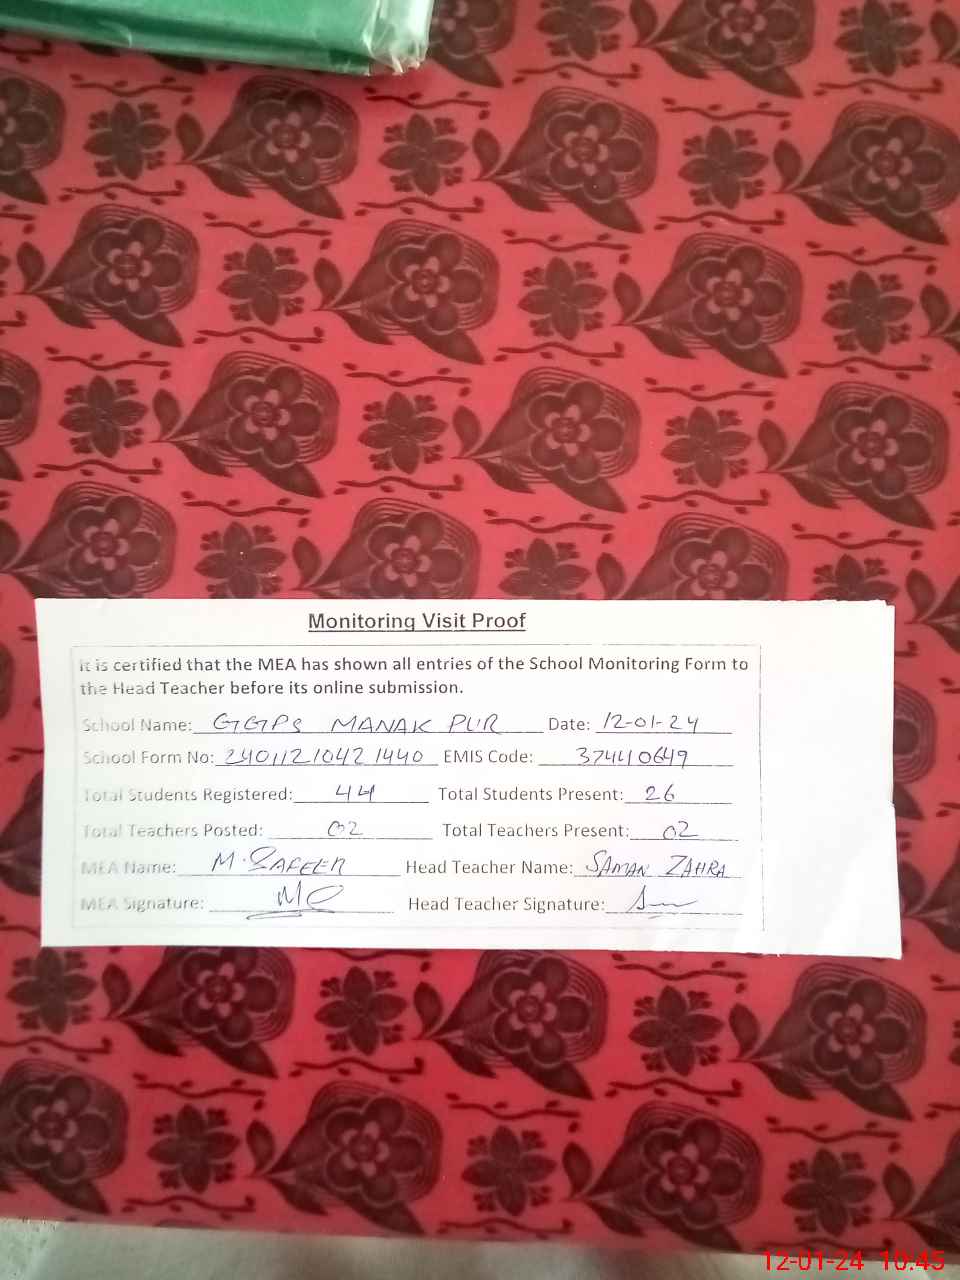 Monitoring Visit Proof
It is certified that the MEA has shown all entries of the School Monitoring Form to
the Head Teacher before its online submission.
School Name: GGPS MANAK PUR Date: 12-01-24
School Form No: 2401121042 1440 EMIS Code: 37440649
Total Students Registered: 44 Total Students Present: 26
Total Teachers Posted: 02 Total Teachers Present: 02
MEA Name: M. SAFEER Head Teacher Name: SAMAN ZAHRA
MEA Signature: Head Teacher Signature:
12-01-24 10:45